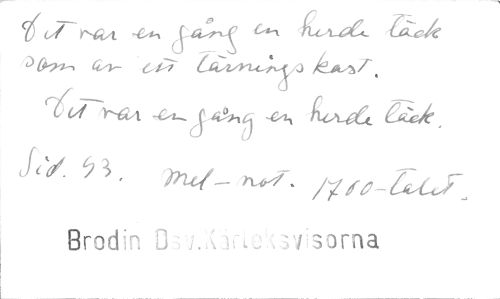 Det var en gång en herde täck
som av ett tärningskast.
Det var en gång en herde täck.
Sid. 93. Mel-not. 1700-talet.
Brodin Osv.Kärleksvisorna